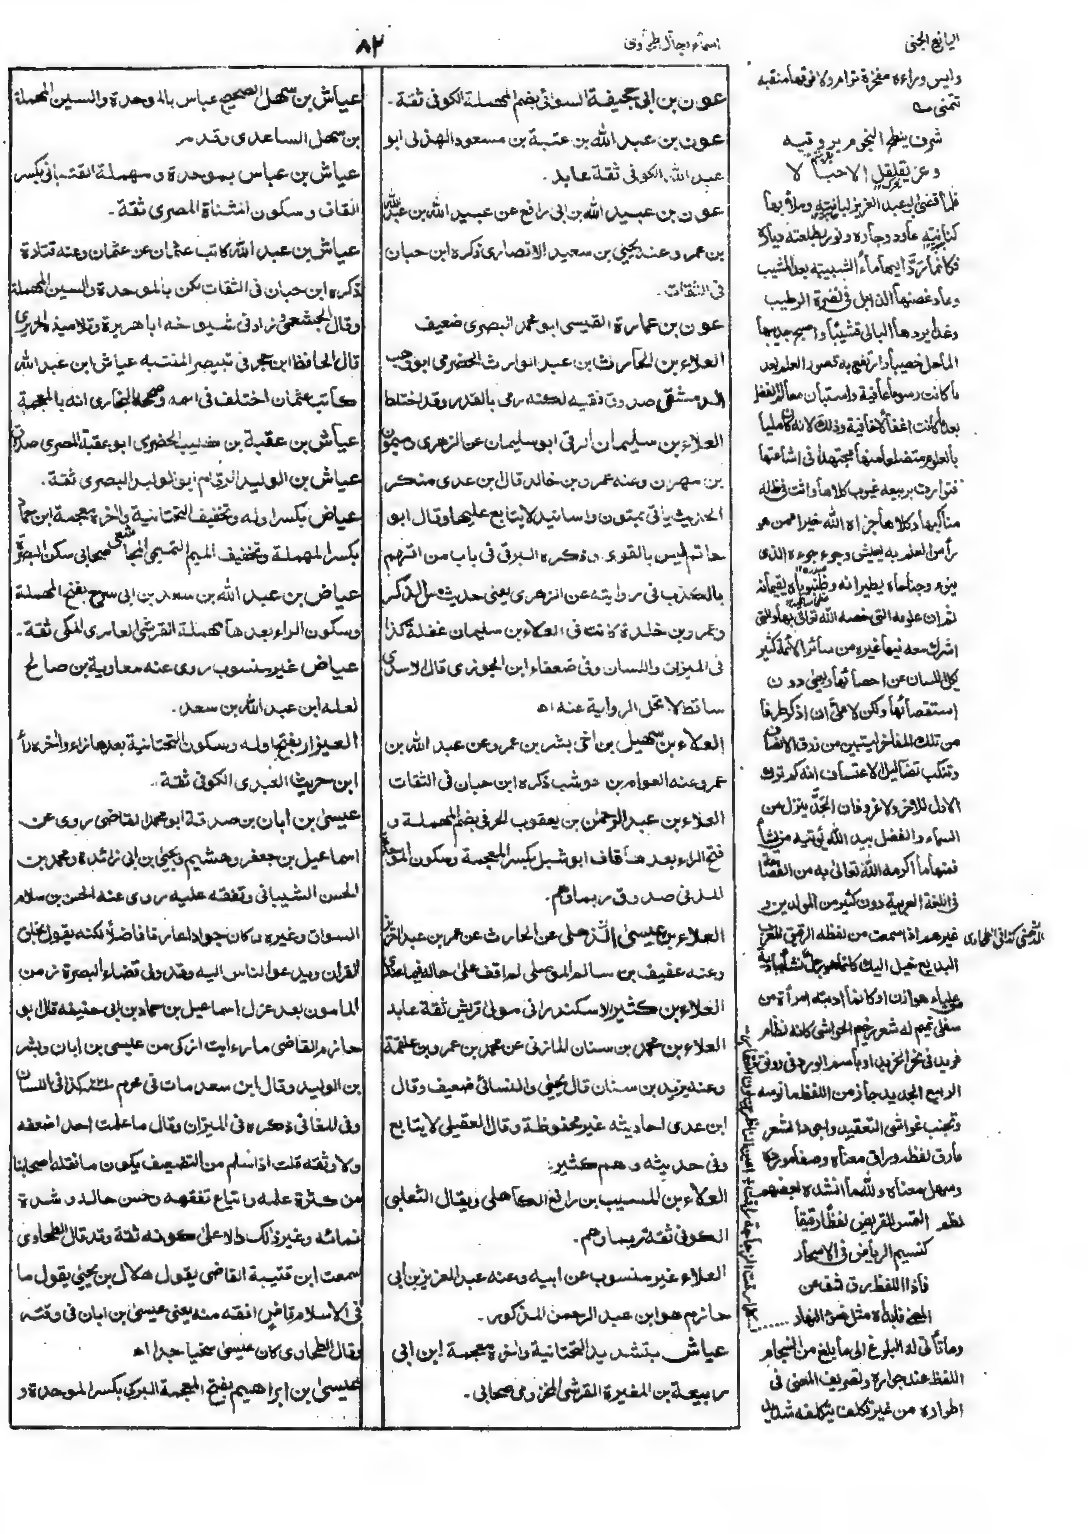 اليانع الجنى
اسماء رجال طحاوى
٨٢
عون بن ابى جحيفة السوائى بضم المهملة الكوفى ثقة.
عون بن عبد الله بن عتبة بن مسعود الهذلى ابو
عبد الله الكوفى ثقة عابد.
عون بن عبيد الله بن ابى رافع عن عبيد الله بن عبد الله
بن عمر وعنه يحيى بن سعيد الانصارى ذكره ابن حبان
فى الثقات.
عون بن عمارة القيسى ابو محمد البصرى ضعيف
العلاء بن الحارث بن عبد الوارث الحضرمى ابو وهب
الدمشقى صدوق فقيه لكنه رمى بالقدر وقد اختلط
العلاء بن سليمان الرقى ابو سليمان عن الزهرى وميمون
بن مهران وعنه عمرو بن خالد قال ابن عدى منكر
الحديث ياتى بمتون واسانيد لا يتابع عليها وقال ابو
حاتم ليس بالقوى وذكره البرقى فى باب من اتهم
بالكذب فى روايته عن الزهرى يعنى حديث مس الذكر
وعمرو بن خلدة كانت فى العلاء بن سليمان غفلة كذا
فى الميزان واللسان وفى ضعفاء ابن الجوزى قال الاسدى
ساقط لا تحل الرواية عنه اه
العلاء بن سهيل بن اخى بشر بن عمرو عن عبد الله بن
عمر وعنه العوام بن حوشب ذكره ابن حبان فى الثقات
العلاء بن عبد الرحمن بن يعقوب الحرقى بضم المهملة و
فتح الراء بعدها قاف ابو شبل بكسر المعجمة وسكون الموحدة
المدنى صدوق ربما وهم.
العلاء بن عيسى الذهلى عن الحارث عن عمر بن عبد العزيز
وعنه عفيف بن سالم الموصلى لم اقف على حاله فيما عندى
العلاء بن كثير الاسكندرانى مولى قريش ثقة عابد
العلاء بن محمد بن سنان المازنى عن محمد بن عمرو بن علقمة
وعنه يزيد بن سنان قال يحيى والنسائى ضعيف وقال
ابن عدى احاديثه غير محفوظة وقال العقيلى لا يتابع
وفى حديثه وهم كثير.
العلاء بن المسيب بن رافع الكاهلى ويقال الثعلبى
الكوفى ثقة ربما وهم.
العلاء غير منسوب عن ابيه وعنه عبد العزيز بن ابى
حازم هو ابن عبد الرحمن المذكور.
عياش بتشديد التحتانية واخره معجمة ابن ابى
ربيعة بن المغيرة القرشى المخزومى صحابى.
عياش بن سهل الصحيح عباس بالموحدة والسين المهملة
بن سهل الساعدى وقد مر
عياش بن عباس بموحدة ومهملة القتبانى بكسر
القاف وسكون المثناة المصرى ثقة.
عياش بن عبد الله كاتب عثمان عن عثمان وعنه قتادة
ذكره ابن حبان فى الثقات لكن بالموحدة والسين المهملة
وقال الجشمى زاد فى شيوخه اباهريرة وتلاميذه الجريرى
قال الحافظ ابن حجر فى تبصير المنتبه عياش ابن عبد الله
كاتب عثمان اختلف فى اسمه وصحح البخارى انه بالمعجمة
عياش بن عقبة بن كليب الحضرمى ابو عقبة المصرى صدوق
عياش بن الوليد الرقام ابو الوليد البصرى ثقة.
عياض بكسر اوله وتخفيف التحتانية واخره معجمة ابن حمار
بكسر المهملة وتخفيف الميم التميمى المجاشعى صحابى سكن البصرة
عياض بن عبد الله بن سعد بن ابى سرح بفتح المهملة
وسكون الراء بعدها مهملة القرشى العامرى المكى ثقة.
عياض غير منسوب روى عنه معاوية بن صالح
لعله ابن عبد الله بن سعد.
العيزار بفتح اوله وسكون التحتانية بعدها زاء واخره راء
ابن حريث العبدى الكوفى ثقة.
عيسى بن ابان بن صدقة ابو محمد القاضى روى عن
اسماعيل بن جعفر وهشيم ويحيى بن ابى زائدة ومحمد بن
الحسن الشيبانى وتفقه عليه روى عنه الحسن بن سلام
السواق وغيره وكان جوادا عارفا فاضلا لكنه يقول بخلق
القران ويدعو الناس اليه وقد ولى قضاء البصرة زمن
المامون بعد عزل اسماعيل بن حماد بن ابى حنيفة قال ابو
حازم القاضى ما رءايت ازكى من عيسى بن ابان وبشر
بن الوليد وقال ابن سعد مات فى محرم ٢٢١ كذا فى اللسان
وفى المغانى ذكره فى الميزان وقال ما علمت احدا ضعفه
ولا وثقه قلت اذا سلم من التضعيف يكون ما نقله اصحابنا
من كثرة علمه واتباع تفقهه وحسن حاله وشدة
نمائه وغير ذلك دالا على كونه ثقة وقد قال الطحاوى
سمعت ابن قتيبة القاضى يقول هلال بن يحيى يقول ما
فى الاسلام قاض افقه منه يعنى عيسى بن ابان فى وقته
وقال الطحاوى كان عيسى سخيا جدا اه
عيسى بن ابراهيم بفتح المعجمة البركى بكسر الموحدة و
وليس وراءه مفخرة ترام ولا فوقها منقبة
تتمنى
شرف ينطح النجوم بروقيه
وعز يقلقل الاجبالا
وعاد غصنها الذابل فى نضرة الرطيب
بالعلوم متضلعا منها مجتهدا فى اشاعتها
رأس العلم به يعيش وجوءجوءه الذى
اشرك معه فيها غيره من سائر الائمة كثير
يكل اللسان عن احصائها ويعيى دون
استقصائها ولكن لا على ان اذكر طرفا
من تلك المفاخر ليتبين من ذوق الانصاف
وتنكب تضاليل الاعتساف انه كم ترك
الاول للاخر ولا غرو فان الجد ينزل من
السماء والفضل بيد الله يؤتيه من يشاء
فمنها ما اكرمه الله تعالى به من الفصاحة
فى اللغة العربية دون كثير من المولدين و
غيرهم اذا سمعت من لفظه الرقيق للغريب
علياء هوازن او كانما ادبته امرأة من
سفلى تميم له شعر رخيم الحواشى كانه نظام
الربيع الجديد جاز من اللفظ مانوسه
وتجنب غواشى التعقيد واجمى المشعر
وسهل معناه ولله ما انشده بعضهم
نظم القمس القريض لفظا رقيقا
كنسيم الرياض فى الاسحار
فاذا اللفظ رق شف عن
المعنى فابداه مثل ضوء النهار
وما تأتى له البلوغ الى ما يبلغ من انسجام
اللفظ عند جزارة وتصريف المعنى فى
اطواره من غير تكلف يتكلفه شديد